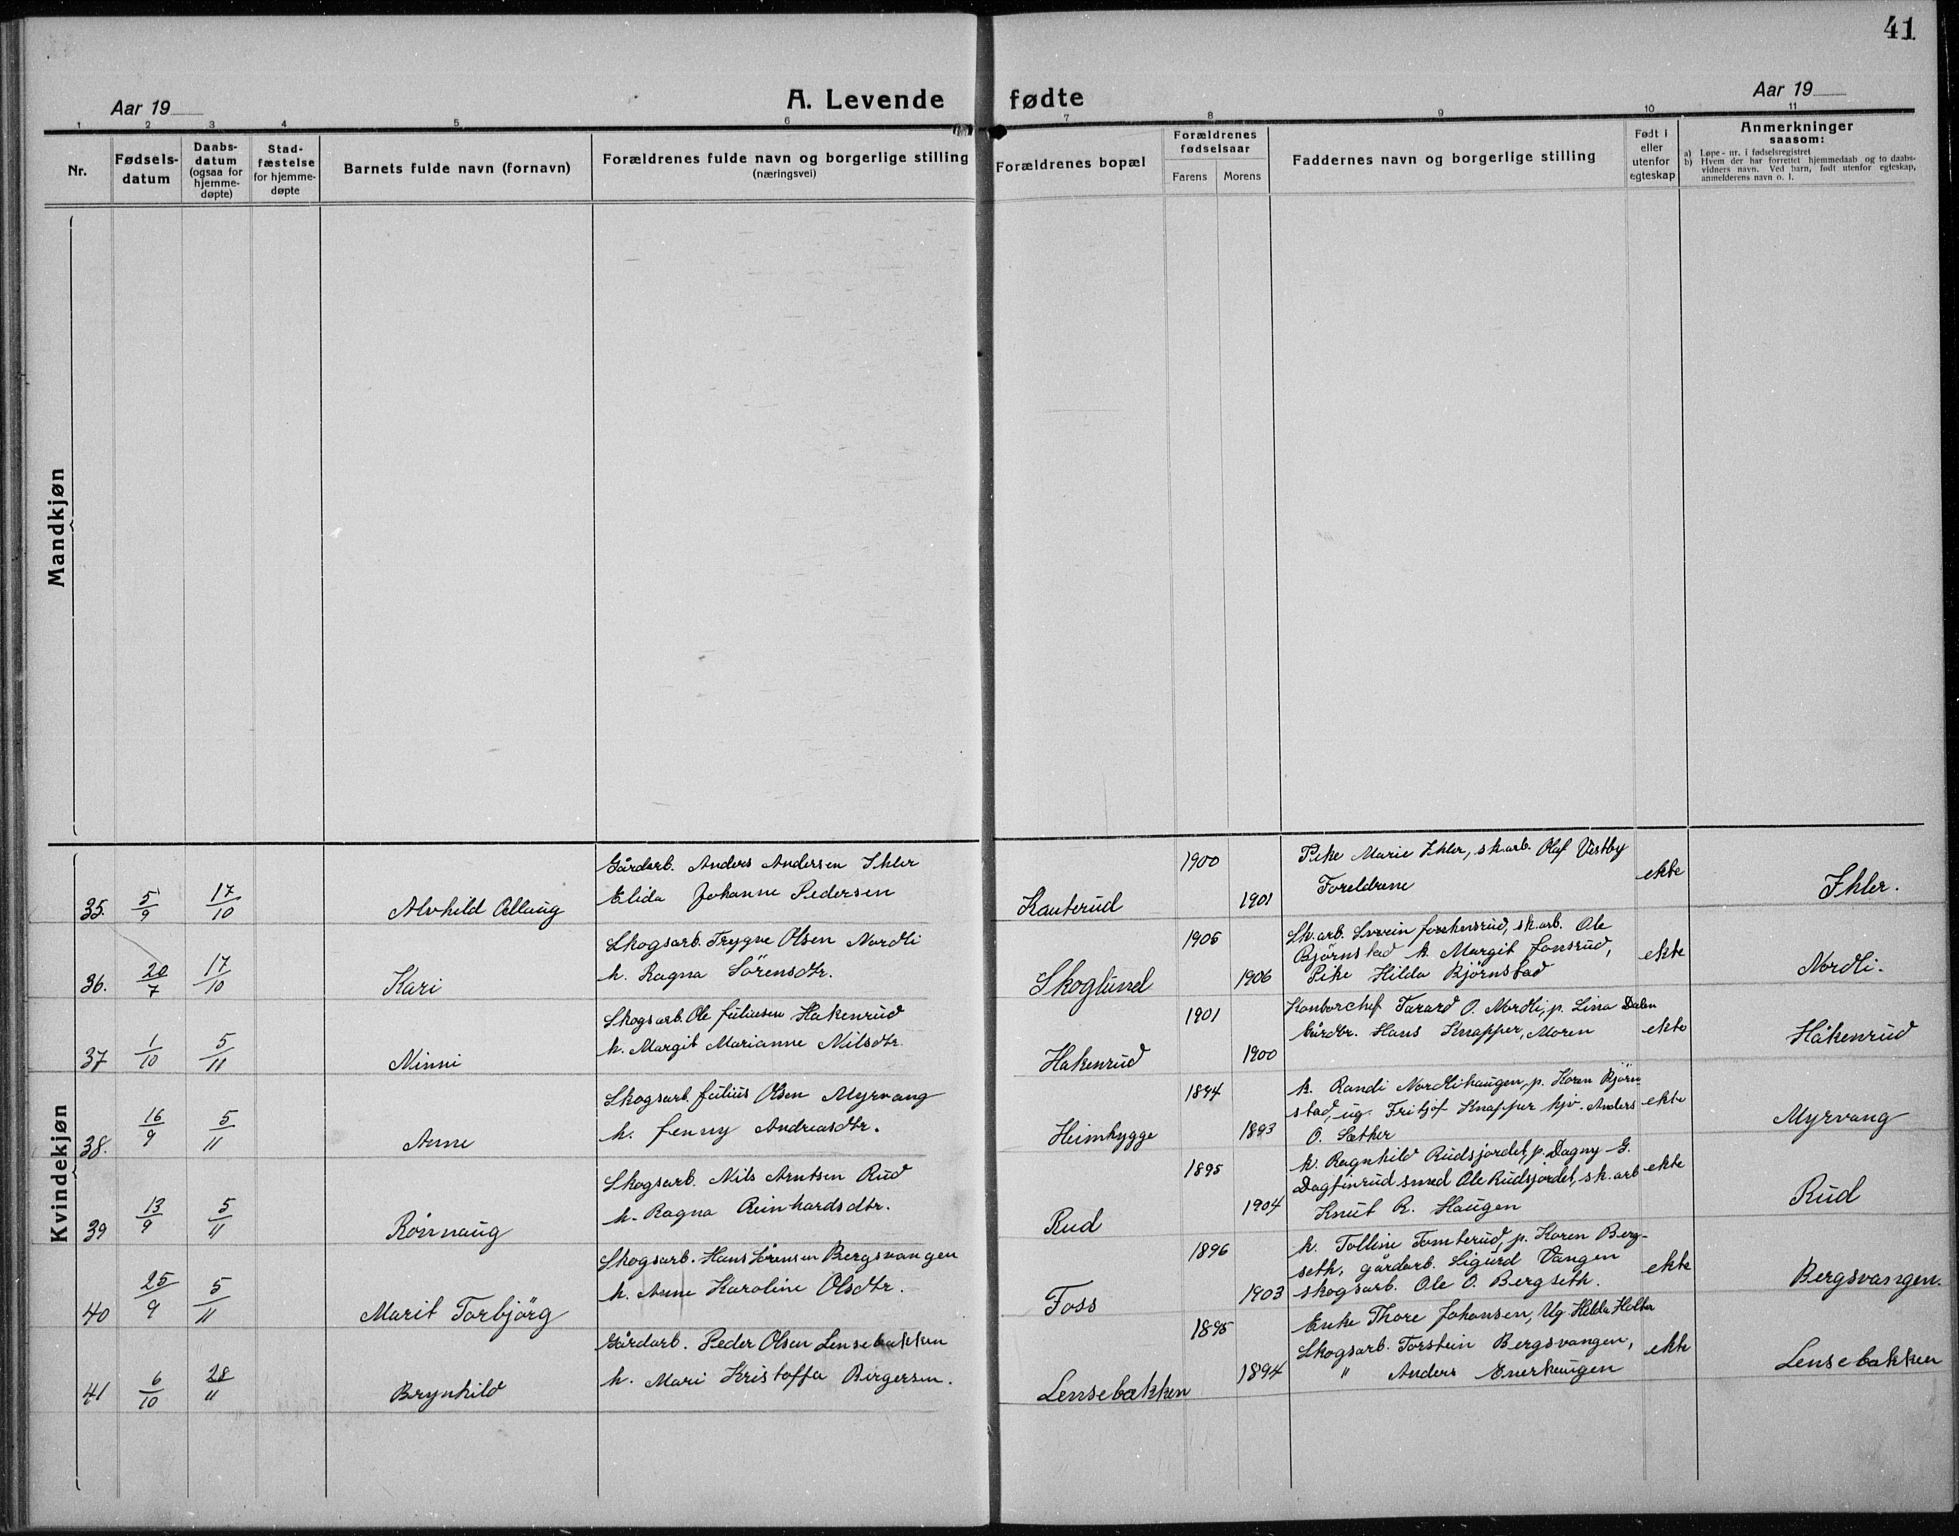 41
Aar 19
A. Levende fødte
Aar 19
1 2 3 4 5 6 7 8 9 10 11
Nr.
Fødsels-
datum
Daabs-
datum
(ogsaa for
hjemme-
døpte)
Stad-
fæstelse
for hjemme-
døpte
Barnets fulde navn (fornavn)
Forældrenes fulde navn og borgerlige stilling
(næringsvei)
Forældrenes bopæl
Forældrenes
fødselsaar
Farens Morens
Faddernes navn og borgerlige stilling
Født i
eller
utenfor
egteskap
Anmerkninger
saasom:
a) Løpe-nr. i fødselsregistret
b) Hvem der har forrettet hjemmedaab og to daabs-
vidners navn. Ved barn, født utenfor egteskap,
anmelderens navn o. l.
Mandkjøn
Kvindekjøn
35. 5/9 17/10 Alvhild Ollaug
Gårdarb. Anders Andersen Ihler
Elida Johanne Pedersen
Kauterud 1900 1901
Pike Marie Ihler, sk.arb. Olaf Vestby
Foreldrene
ekte Ihler.
36. 20/7 17/10 Kari
Skogsarb. Trygve Olsen Nordli
h. Ragna Sörensdtr.
Skoglund 1905 1906
Sk.arb. Svein, sk.arb. Ole
Björnstad k. Margit Jonsrud,
Pike Hilda Bjørnstad
ekte Nordli.
37 1/10 5/11 Minni
Skogsarb. Ole Juliusen Hakenrud
h. Margit Marianne Nilsdtr.
Hakenrud 1901 1900
Kontorchef O. Nordli, p. Lina Dalen
Gårdbr. Hans Knapper, Moren
ekte Håkenrud
38. 16/9 5/11 Anne
Skogsarb. Julius Olsen Myrvang
h. Jenny Andreasdtr.
Heimhygge 1894 1893
k. Randi Nordlihaugen, p. Karen Bjørn
stad, ug. Fritjof Knapper hjv. Anders
O. Sæther
ekte Myrvang
39 13/9 5/11 Rönnaug
Skogsarb. Nils Arntsen Rud
h. Ragna Reinhardsdtr.
Rud 1895 1904
k. Ragnhild Rudsjordet, p. Dagny G.
Dagfinrud smed Ole Rudsjordet, sk.arb
Knut R. Haugen
ekte Rud
40 25/9 5/11 Marit Torbjörg
Skogsarb. Hans Sörensen Bergsvangen
h. Anne Karoline Olsdtr.
Foss 1896 1903
k. Tolline Tomterud, p. Karen Berg-
seth, gårdarb. Sigurd Vangen
skogsarb. Ole O. Bergseth.
ekte Bergsvangen.
41 6/10 28/11 Brynhild
Gårdarb. Peder Olsen Lensebakken
h. Mari Kristoffa Birgersen.
Lensebækken 1895 1894
Enke Thore Johansen, Ug Hilda Holter
Skogsarb. Torstein Bergsvangen,
" Anders Enerhaugen
ekte Lensebakken